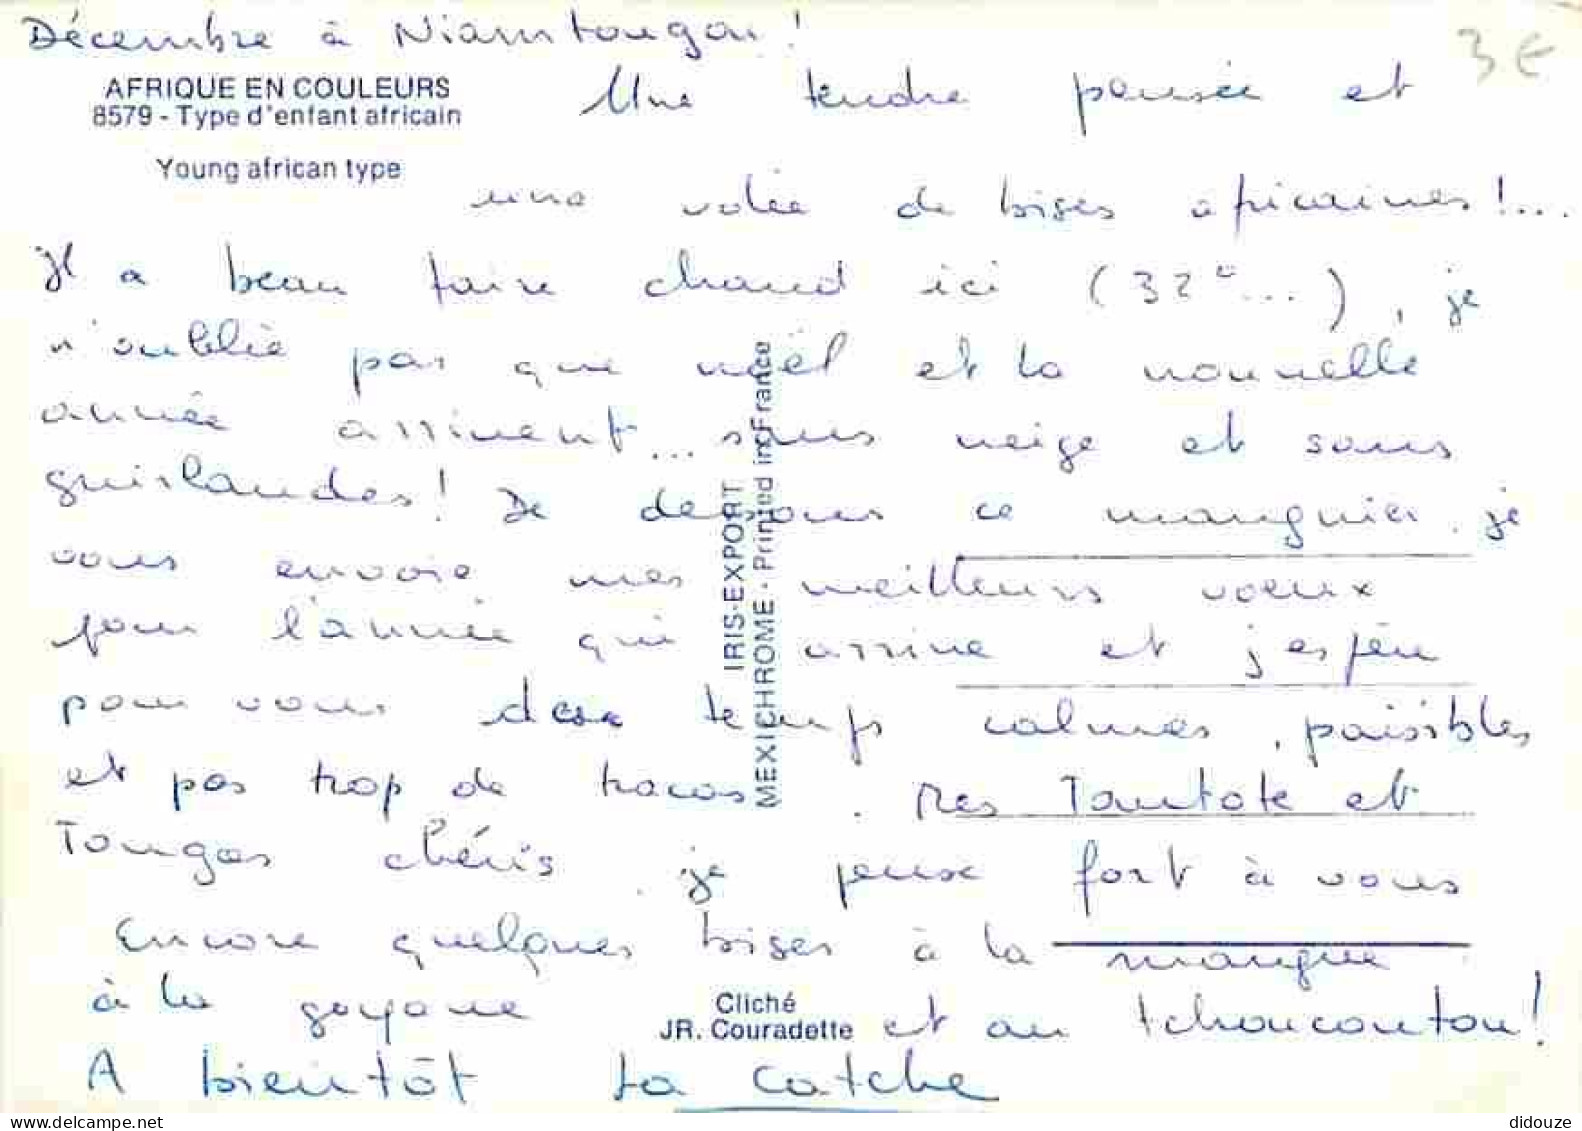 Décembre à Niamtougou !
3 €
AFRIQUE EN COULEURS
8579 - Type d'enfant africain
Young african type
Une tendre pensée et
une volée de bises africaines !...
Il a beau faire chaud ici (32°...), je
n'oublie pas que noël et la nouvelle
année arrivent... sans neige et sans
guirlandes ! De dessous ce manguier, je
vous envoie mes meilleurs voeux
pour l'année qui arrive et j'espère
pour vous des temps calmes, paisibles
et pas trop de tracas. Mes Tantote et
Tongas chéris, je pense fort à vous
Encore quelques bises à la mangue
à la goyave et au tchoucoutou !
A bientôt La Catche
IRIS-EXPORT
MEXICHROME - Printed in France
Cliché
JR. Couradette
delcampe.net
didouze